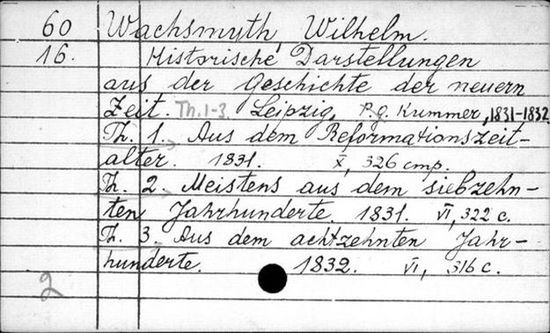 60 Wachsmyth, Wilhelm.
16. Historische Darstellungen
aus der Geschichte der neuern
Zeit. Th. 1-3. Leipzig, P.G. Kummer, 1831-1832
Th. 1. Aus dem Reformationszeit-
alter. 1831. X, 326 стр.
Th. 2. Meistens aus dem siebzehn-
ten Jahrhunderte. 1831. VI, 322 с.
Th. 3. Aus dem achtzehnten Jahr-
hunderte. 1832. VI, 316 с.
2